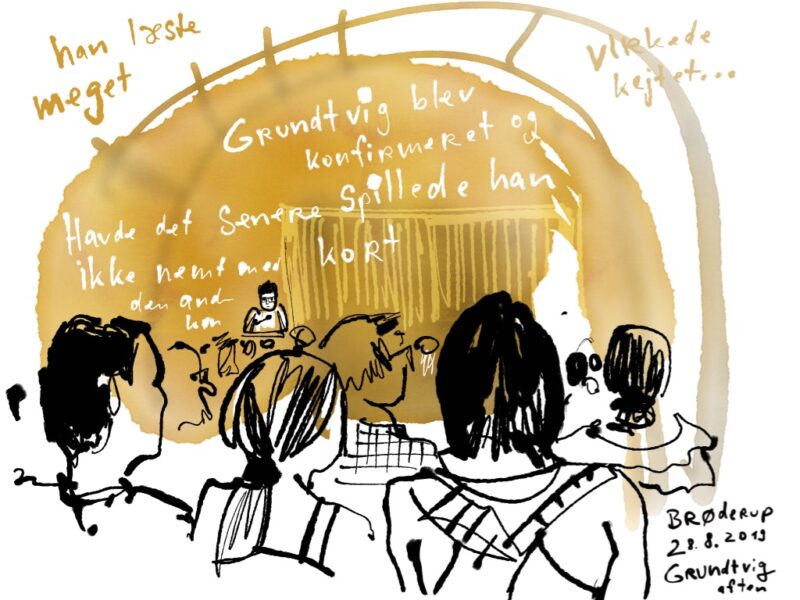 han læste
meget
virkede
kejtet...
Grundtvig blev
konfirmeret og
senere spillede han
kort
Havde det
ikke nemt med
den and
køn
Brøderup
28.8.2019
Grundtvig
aften